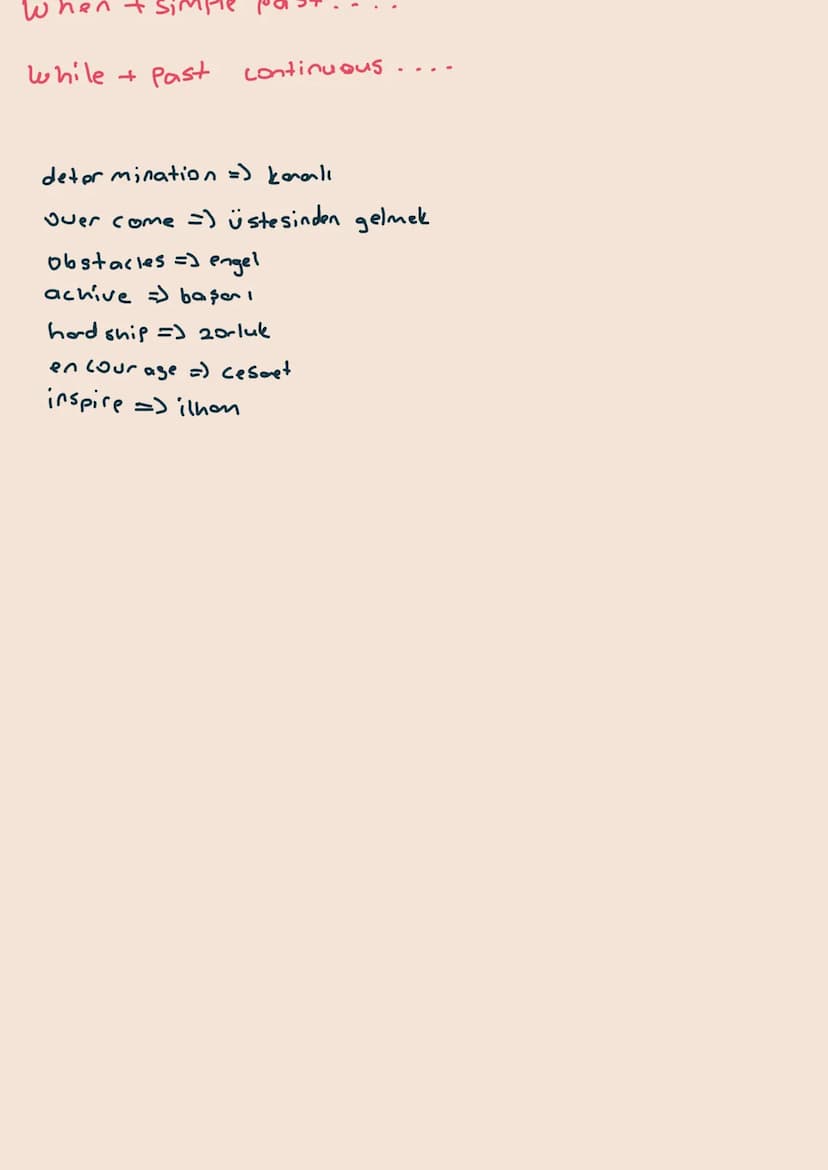 When + simple past . . . .
while + past continuous . . . .
determination => kararlı
over come => üstesinden gelmek
obstacles => engel
achive => başarı
hardship => zorluk
encourage => cesaret
inspire => ilham